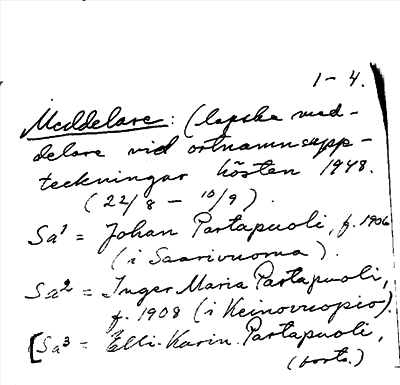 1-4.
Meddelare: (lapska med-
delare vid ortnamnsupp-
teckningar hösten 1948.
(22/8 - 10/9).
Sa¹ = Johan Partapuoli, f. 1906
(i Saarivuoma).
Sa² = Inger Maria Partapuoli,
f. 1908 (i Keinovuopio).
[Sa³ = Elli-Karin Partapuoli,
(forts.)